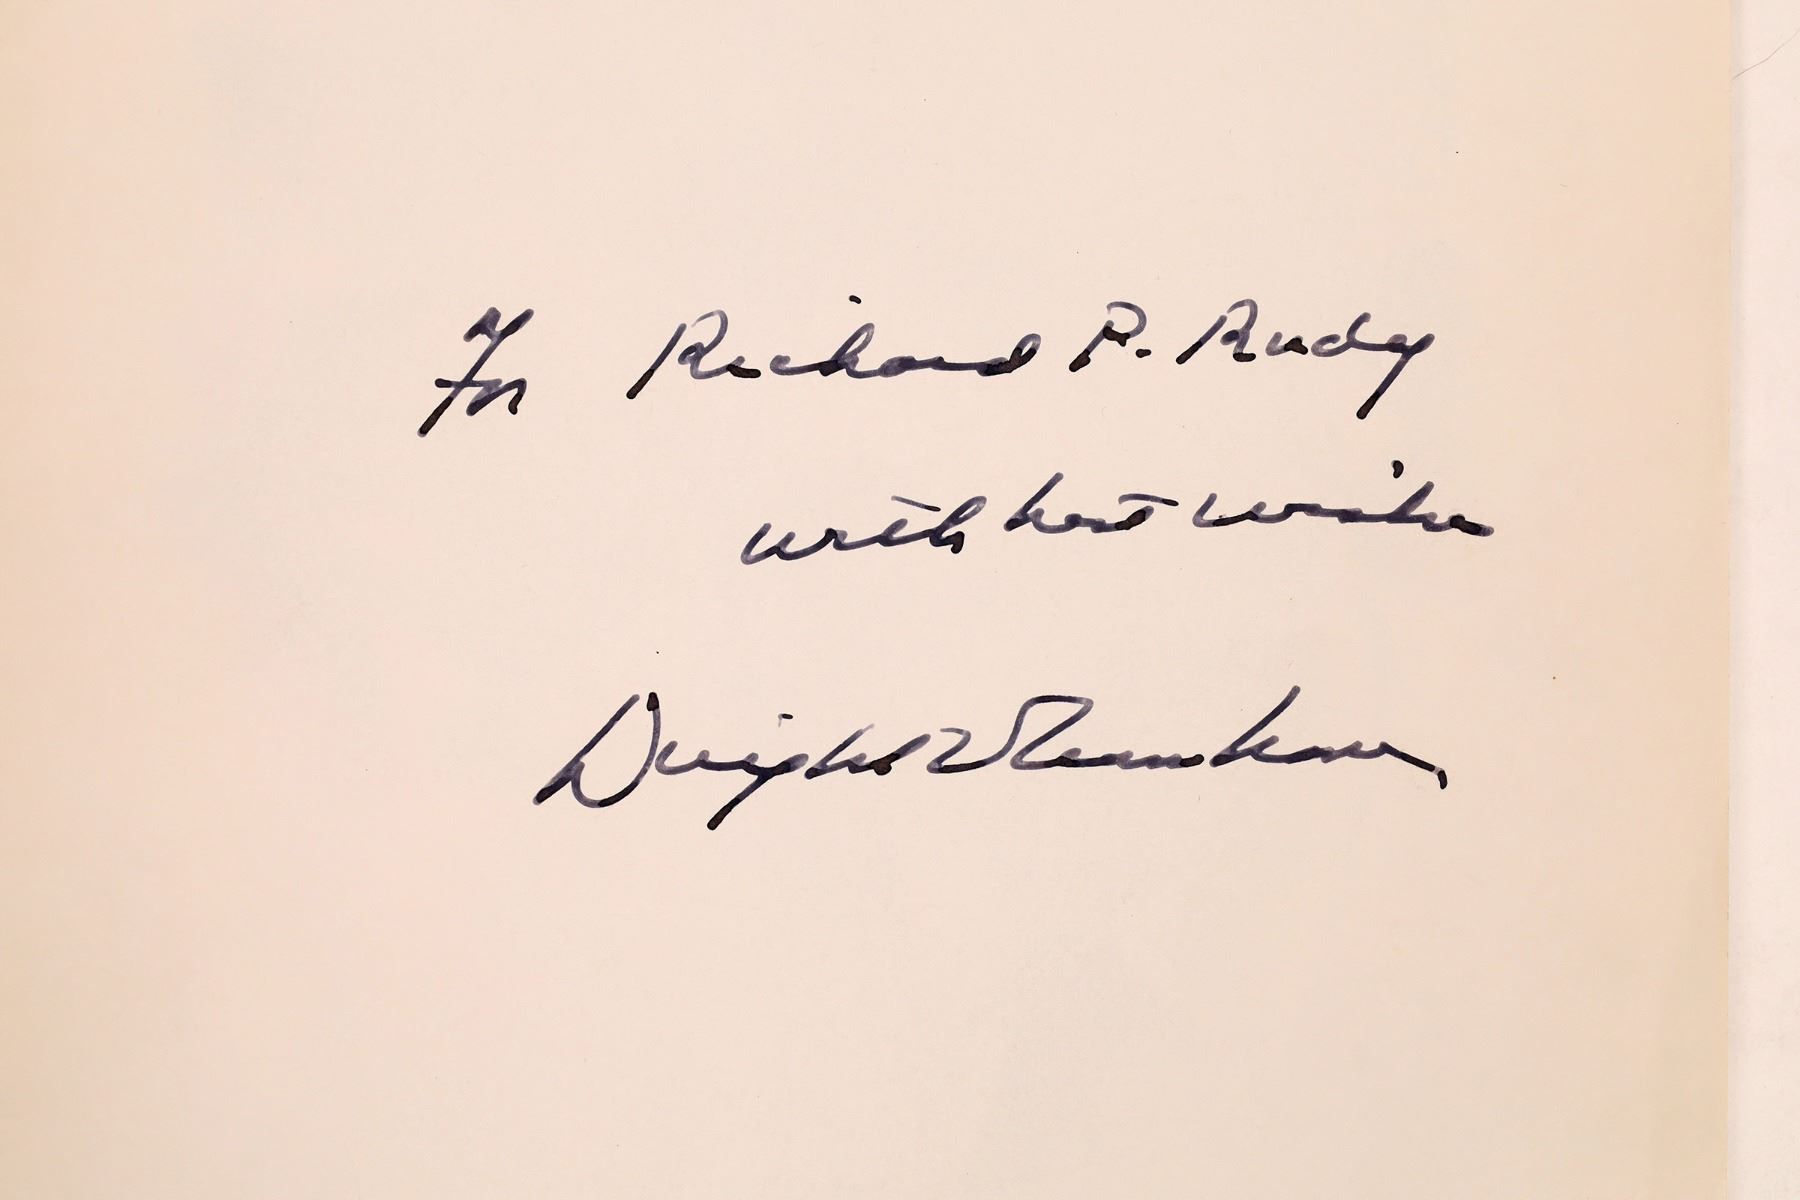 For Richard P. Rudy
with best wishes
Dwight D Eisenhower